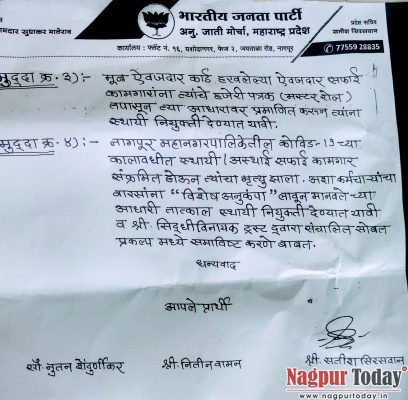 भारतीय जनता पार्टी
अनु. जाती मोर्चा, महाराष्ट्र प्रदेश
आमदार सुधाकर भालेराव
प्रदेश सचिव
सतीश सिरसवान
कार्यालय : फ्लॅट नं. १६, यशोदानगर, फेज २, जयताळा रोड, नागपूर
77559 28835
मुद्दा क्र. ३):- मुळ ऐवजदार कार्ड हरवलेल्या ऐवजदार सफाई
कामगारांना त्यांचे हजेरी पत्रक (मस्टर रोल)
तपासून त्या आधारावर प्रमाणित करून त्यांना
स्थायी नियुक्ती देण्यात यावी.
मुद्दा क्र. ४):- नागपूर महानगरपालिकेतील कोविड-19 च्या
कालावधीत स्थायी/अस्थाई सफाई कामगार
संक्रमित होऊन त्यांचा मृत्यु झाला. अशा कर्मचाऱ्यांचा
वारसांना "विशेष अनुकंपा" लावून मानवतेच्या
आधारी तात्काल स्थायी नियुक्ती देण्यात यावी
व श्री. सिद्धीविनायक ट्रस्ट द्वारा संचालित सोबत
प्रकल्प मध्ये समाविष्ट करणे बाबत.
धन्यवाद
आपले प्रार्थी
सौ. नुतन शेंदुर्णीकर श्री. नितीन वामन श्री. सतिश सिरसवान
Nagpur Today
www.nagpurtoday.in